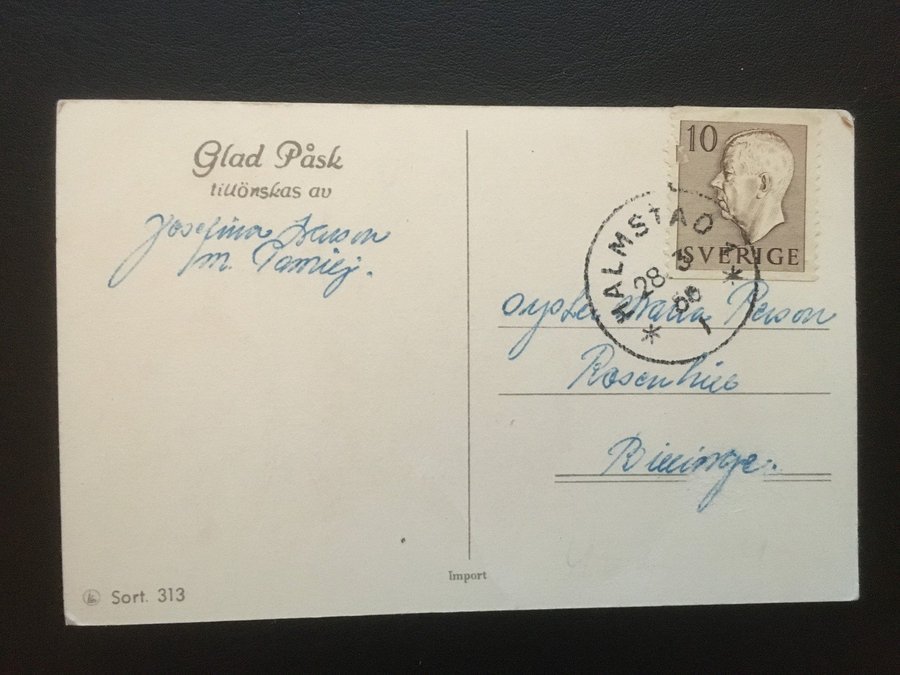 Glad Påsk
tillönskas av
Josefina
m. Familj.
10
SVERIGE
HALMSTAD 1
28. 3
56
Maria Person
Rosenhill
Billinge.
Import
Sort. 313